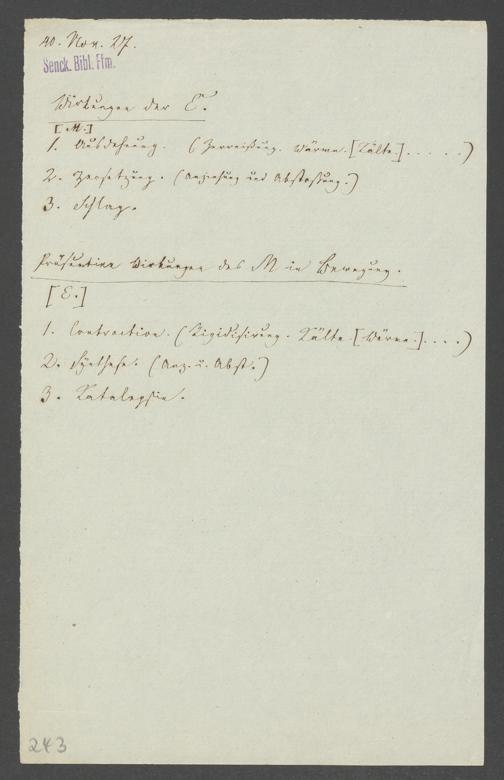 40. Nov. 27.
Senck. Bibl. Ffm.
Wirkungen der E.
[M.]
1. Ausdehnung. (Zerreißung. Wärme. [Kälte.] . . . . . )
2. Zersetzung. (Anziehung und Abstoßung.)
3. Schlag.
Präsumtive Wirkungen des M in Bewegung.
[E.]
1. Contraction. (Rigidisirung. Kälte [Wärme.] . . . . )
2. Synthese. (Anz. u. Abst.)
3. Katalepsie.
243